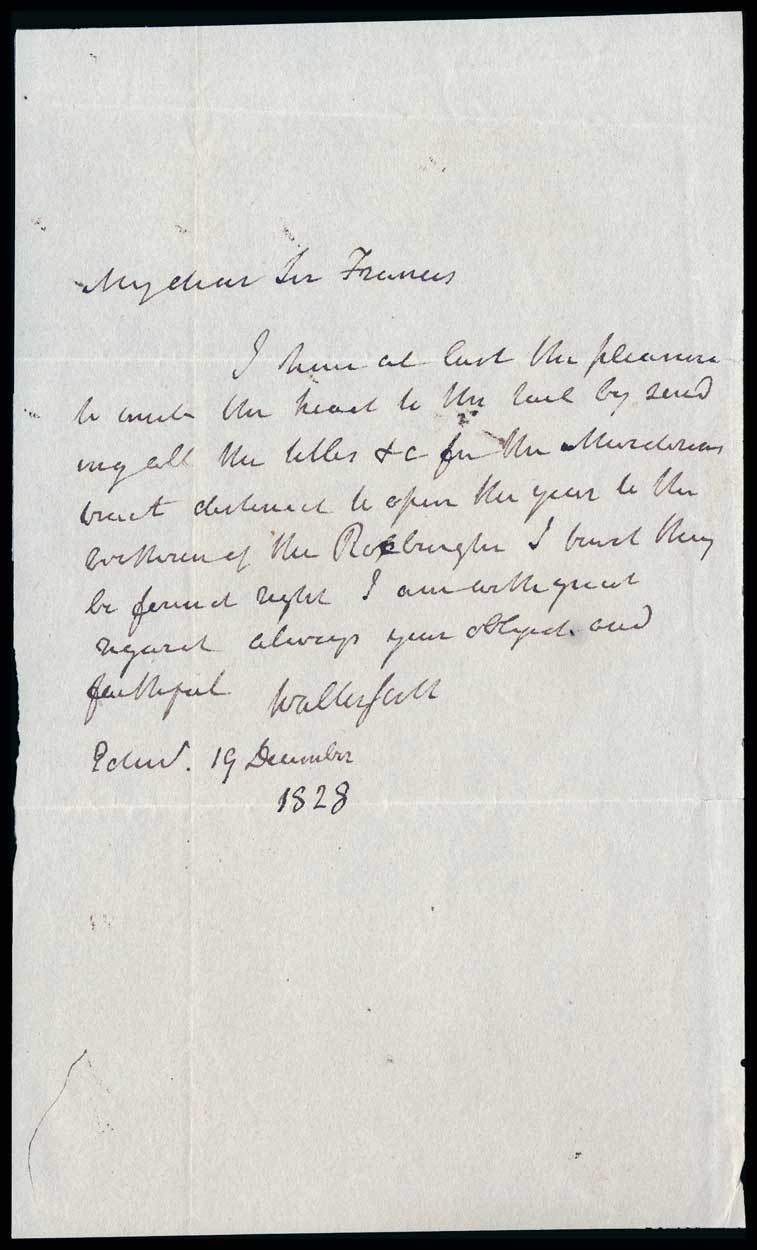 My dear Sir Francis
I have at last the pleasure
to unite the head to the tail by send
ing all the titles &c for the Murderous
tract destined to open the year to the
brethren of the Roxburghe I trust they
be found right I am with great
regard always your obliged and
faithful Walter Scott
Edinr. 19 December
1828